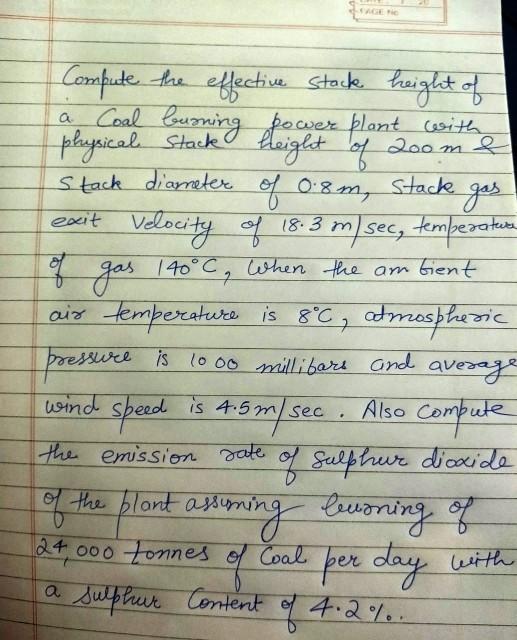 PAGE No
Compute the effective stack height of
a Coal burning power plant with
physical Stack height of 200 m &
Stack diameter of 0.8 m, Stack gas
exit Velocity of 18.3 m/sec, temperature
of gas 140°C, when the ambient
air temperature is 8°C, atmospheric
pressure is 1000 millibars and average
wind speed is 4.5 m/sec. Also Compute
the emission rate of Sulphur dioxide
of the plant assuming burning of
24,000 tonnes of Coal per day with
a Sulphur Content of 4.2%.